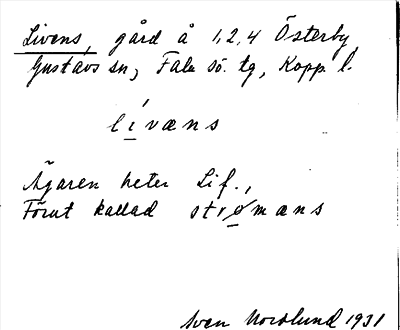 Livens, gård å 1, 2, 4 Österby
Gustavs sn, Falu sö. tg, Kopp. l.
lívæns
Ägaren heter Lif.,
Förut kallad strømæns
Sven Norslund 1931